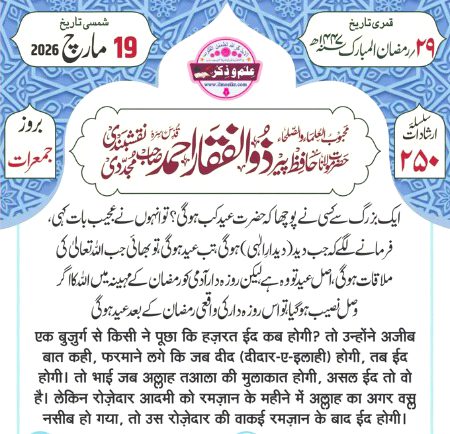 شمسی تاریخ
19 مارچ 2026
قمری تاریخ
۲۹ رمضان المبارک ۱۴۴۷ھ
علم و ذکر
بروز
جمعرات
سلسلۂ
ارشادات
۲۵۰
محبوب العلماء والصلحاء
حضرت مولانا حافظ پیر ذوالفقار احمد صاحب نقشبندی مجددی
ایک بزرگ سے کسی نے پوچھا کہ حضرت عید کب ہوگی؟ تو انہوں نے عجیب بات کہی،
فرمانے لگے کہ جب دید (دیدارِ الٰہی) ہوگی، تب عید ہوگی، تو بھائی جب اللہ تعالیٰ کی
ملاقات ہوگی، اصل عید تو وہ ہے لیکن روزہ دار آدمی کو رمضان کے مہینہ میں اللہ کا اگر
وصل نصیب ہوگیا، تو اس روزہ دار کی واقعی رمضان کے بعد عید ہوگی
एक बुज़ुर्ग से किसी ने पूछा कि हज़रत ईद कब होगी? तो उन्होंने अजीब
बात कही, फरमाने लगे कि जब दीद (दीदार-ए-इलाही) होगी, तब ईद
होगी। तो भाई जब अल्लाह तआला की मुलाकात होगी, असल ईद तो वो
है। लेकिन रोज़ेदार आदमी को रमज़ान के महीने में अल्लाह का अगर वस्ल
नसीब हो गया, तो उस रोज़ेदार की वाकई रमज़ान के बाद ईद होगी।